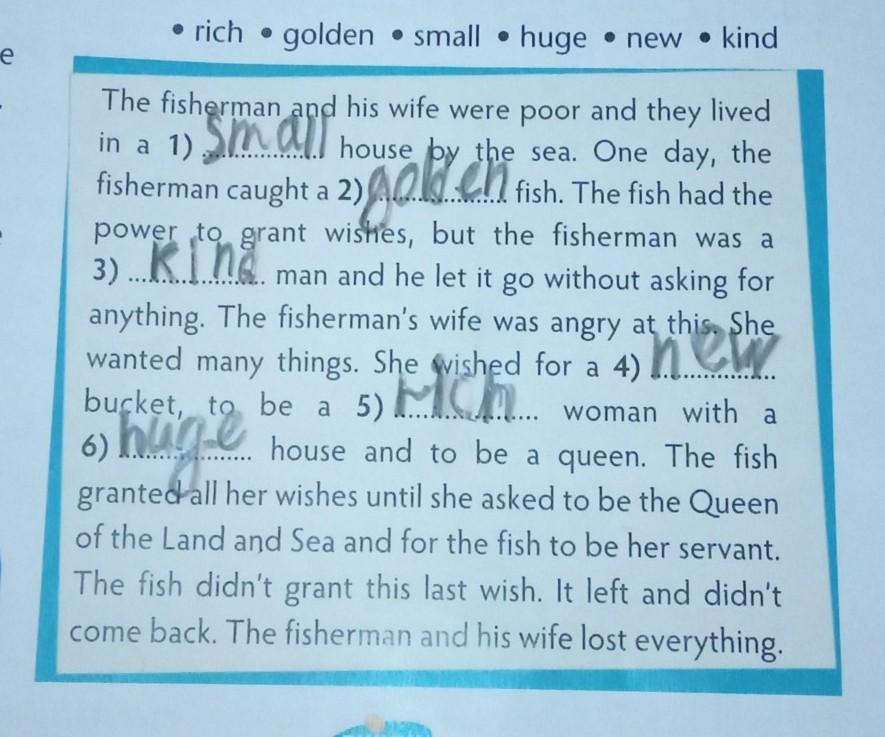 • rich • golden • small • huge • new • kind
e
The fisherman and his wife were poor and they lived
in a 1) small house by the sea. One day, the
fisherman caught a 2) golden fish. The fish had the
power to grant wishes, but the fisherman was a
3) kind man and he let it go without asking for
anything. The fisherman's wife was angry at this. She
wanted many things. She wished for a 4) new
bucket, to be a 5) rich woman with a
6) huge house and to be a queen. The fish
granted all her wishes until she asked to be the Queen
of the Land and Sea and for the fish to be her servant.
The fish didn't grant this last wish. It left and didn't
come back. The fisherman and his wife lost everything.